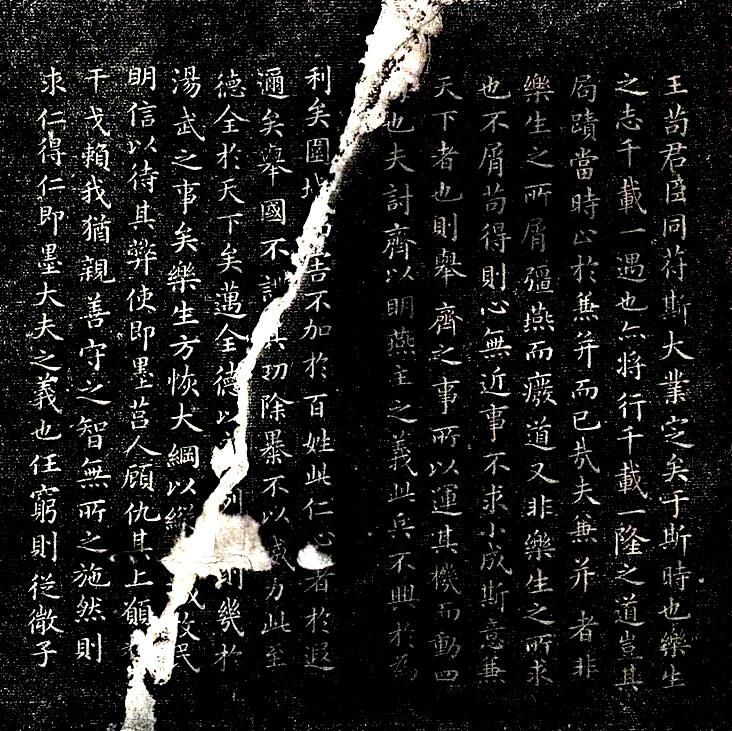 王苟君臣同苻斯大業定矣于斯時也樂生
之志千載一遇也亦將行千載一隆之道豈其
局蹟當時止於兼并而已哉夫兼并者非
樂生之所屑彊燕而廢道又非樂生之所求
也不屑苟得則心無近事不求小成斯意兼
天下者也則舉齊之事所以運其機而動四
也夫討齊以明燕主之義此兵不興於為
利矣圍害不加於百姓此仁心著於遐
邇矣舉國不其功除暴不以威力此至
德全於天下矣邁全德以則幾於
湯武之事矣樂生方恢大綱以縱牧民
明信以待其弊使即墨莒人顧仇其上願
干戈賴我猶親善守之智無所之施然則
求仁得仁即墨大夫之義也任窮則從微子